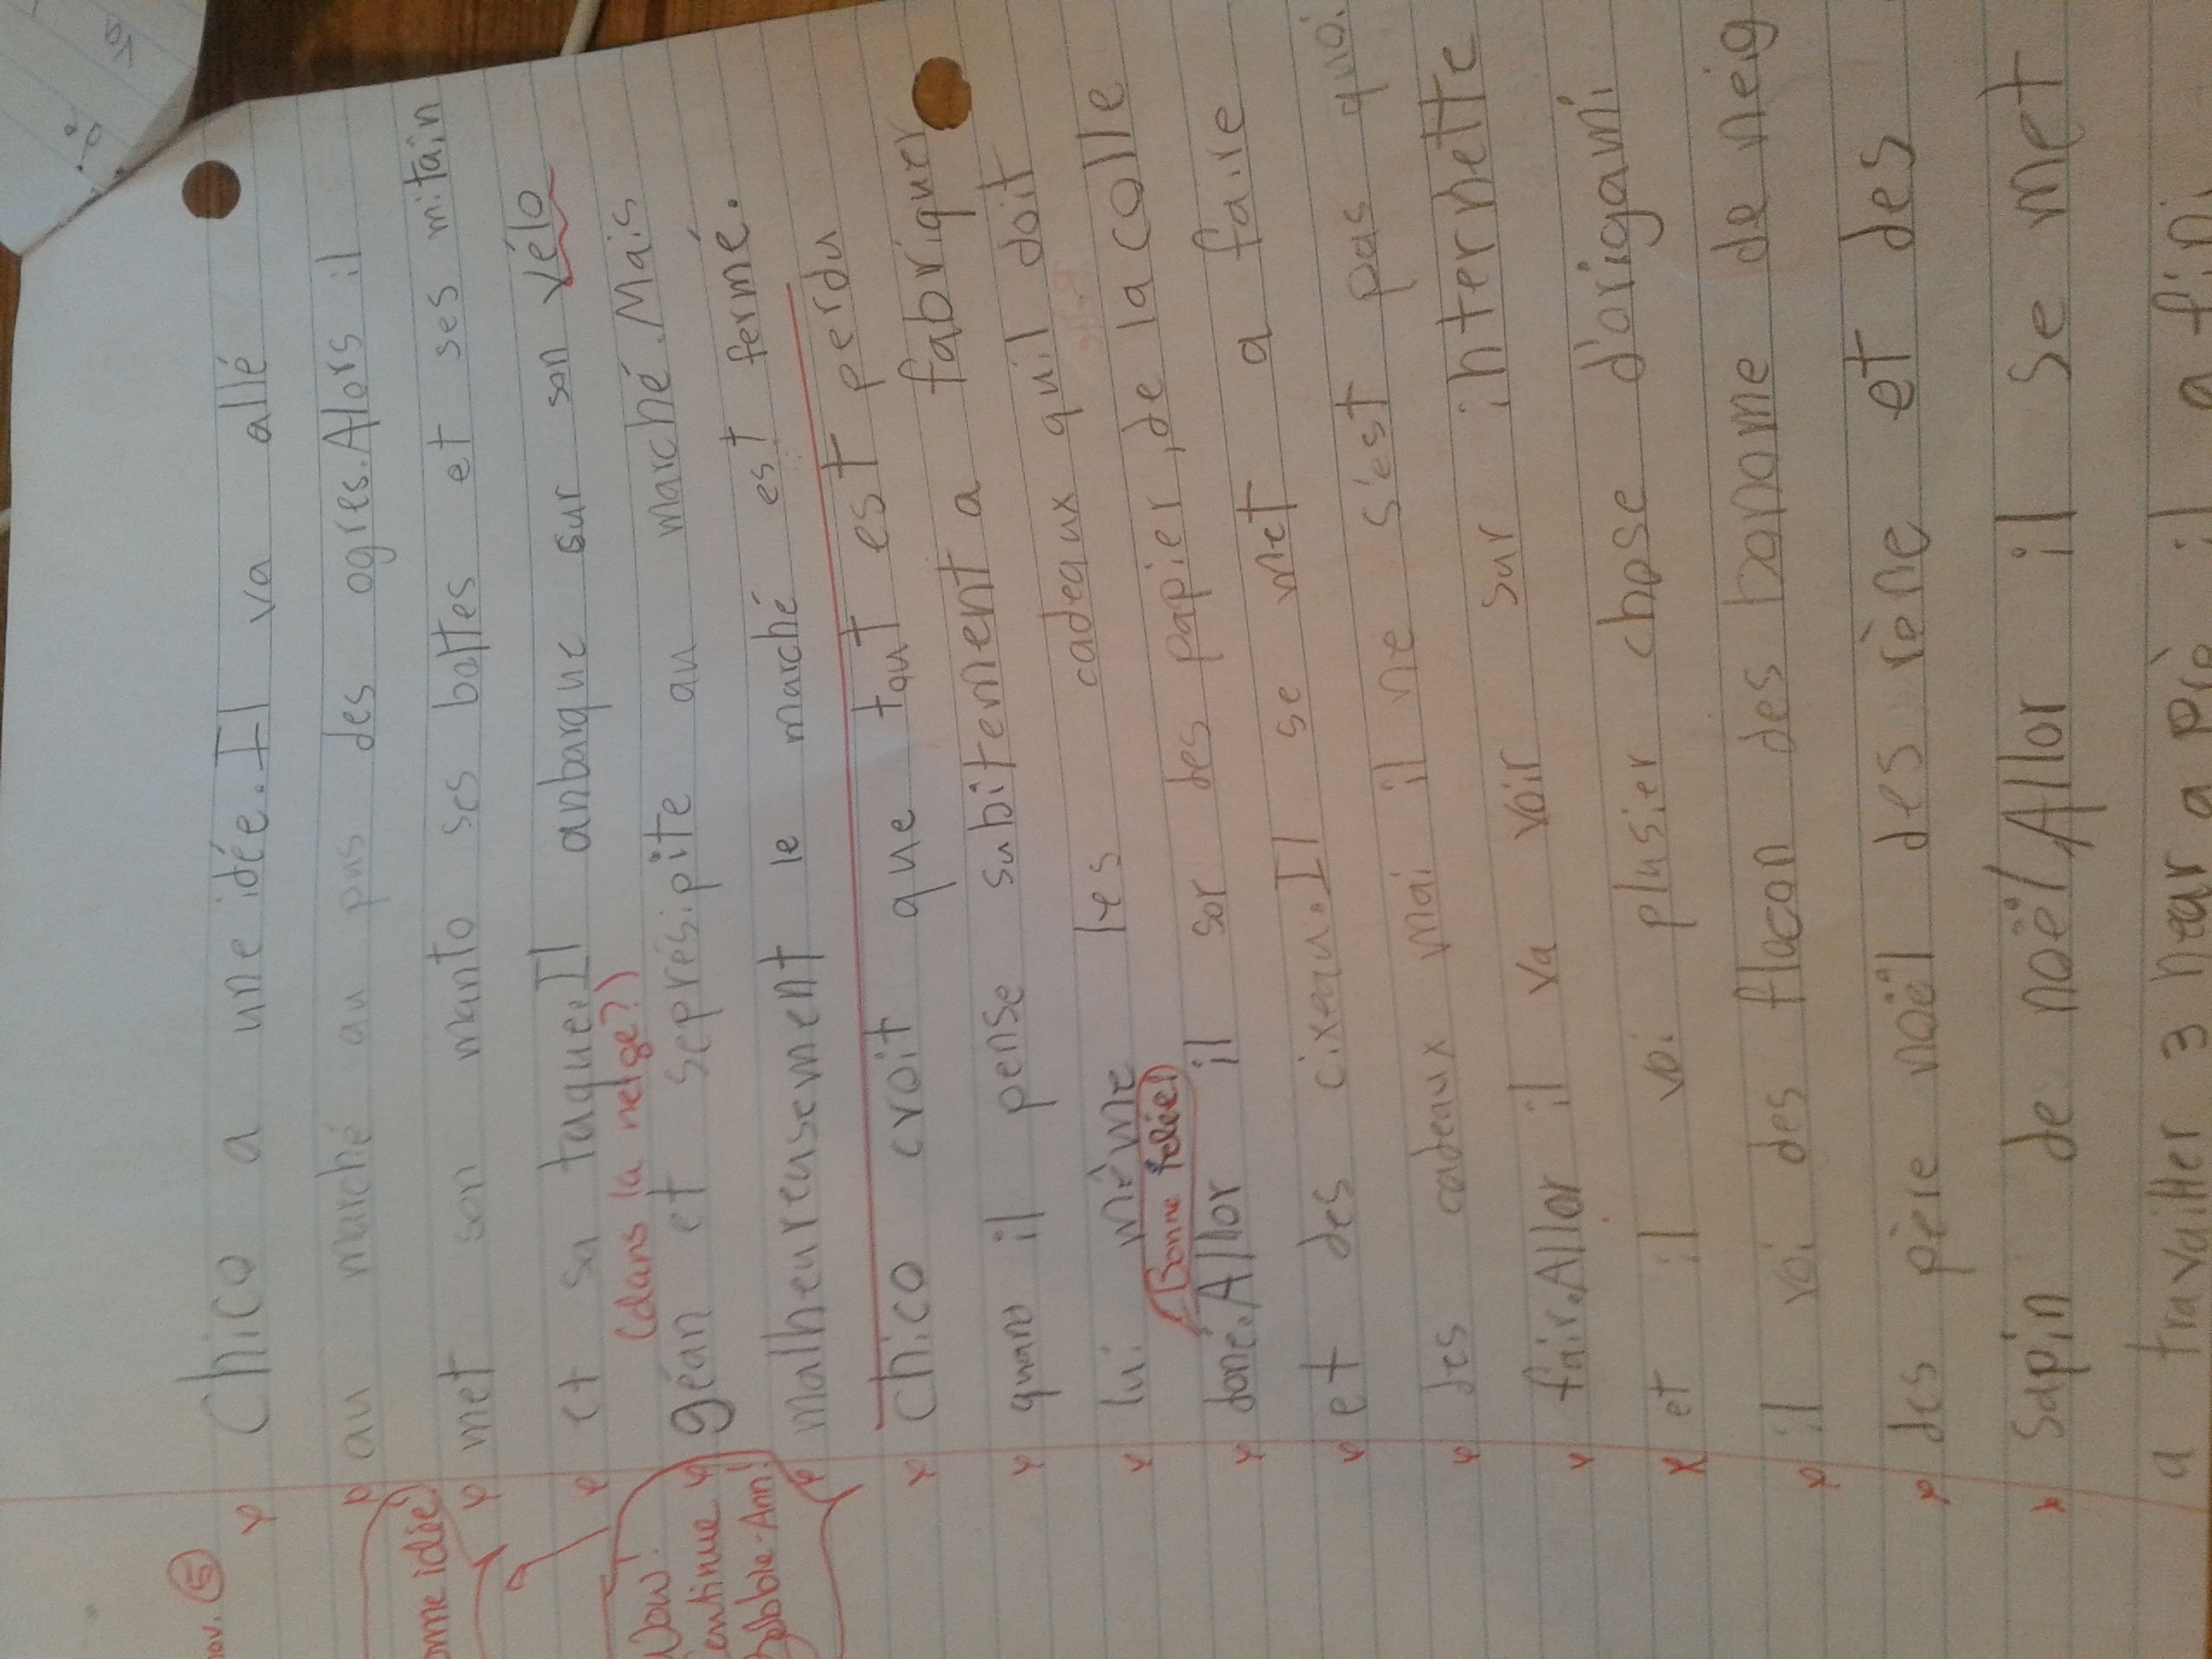 nov. 5
Chico a une idée. Il va allé
au marché au pus des ogres. Alors il
met son manto ses bottes et ses mitain
et sa tuque. Il anbarque sur son vélo
(dans la neige?)
géan et seprésipite au marché. Mais
malheureusement le marché est fermé.
Chico croit que tout est perdu
quand il pense subitement a fabriquer
lui même les cadeaux quil doit
Bonne idée!
doné. Allor il sor des papier, de la colle
et des cixeau. Il se met a faire
des cadeaux mai il ne s'est pas quoi.
fair. Allor il va voir sur internette
et il voi plusier chose d'origami
il voi des flocon des bonome de neig
des père noël des rène et des
sapin de noël, Allor il se met
a travailler 3 heur a piè il a fini
onne idée!
Wow!
Continue